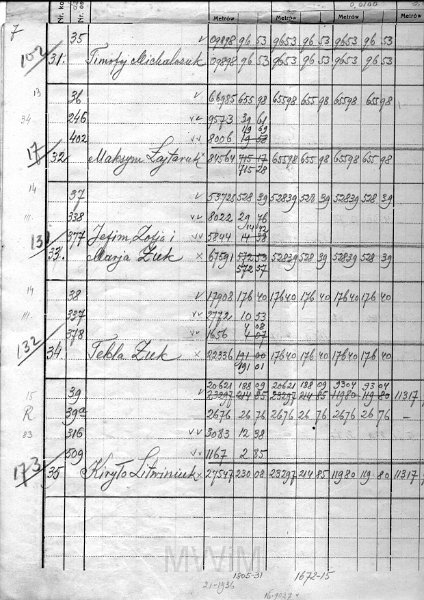 Nr. ko
Metrów Metrów Metrów Metrów
7 35 v 09898 96 53 9653 96 53 9653 96 53
102 31. Timofy Michalczuk 09898 96 53 9653 96 53 9653 96 53
13 36 v 66985 655 98 65598 655 98 65598 655 98
34 246 vv 9573 39 61
119 69
402 vv 8006 19 58
17 32. Maksym Łajtaruk 84564 715 17 65598 655 98 65598 655 98
715 28
14 37 v 53725 528 39 52839 528 39 52839 528 39
338 vv 8022 29 76
377 Jefim, Zofja i vv 5844 14 38
131 33. Marja Żuk x 67591 572 53 52839 528 39 52839 528 39
572 57
14 38 v 17908 176 40 17640 176 40 17640 176 40
337 vv 2772 10 53
4 08
378 vv 1656 4 07
132 34. Tekla Żuk x 22336 191 00 17640 176 40 17640 176 40
191 01
20621 188 09 20621 188 09 9304 93 04
15 39 v 23297 214 85 23297 214 85 11980 119 80 11317
R 39a 2676 26 76 2676 26 76 2676 26 76 —
83 316 vv 3083 12 38
509 vv 1167 2 85
173 35 Kiryło Litwiniuk x 27547 230 08 23297 214 85 11980 119 80 11317
MWiM
1805-31 1672-15
21-1936